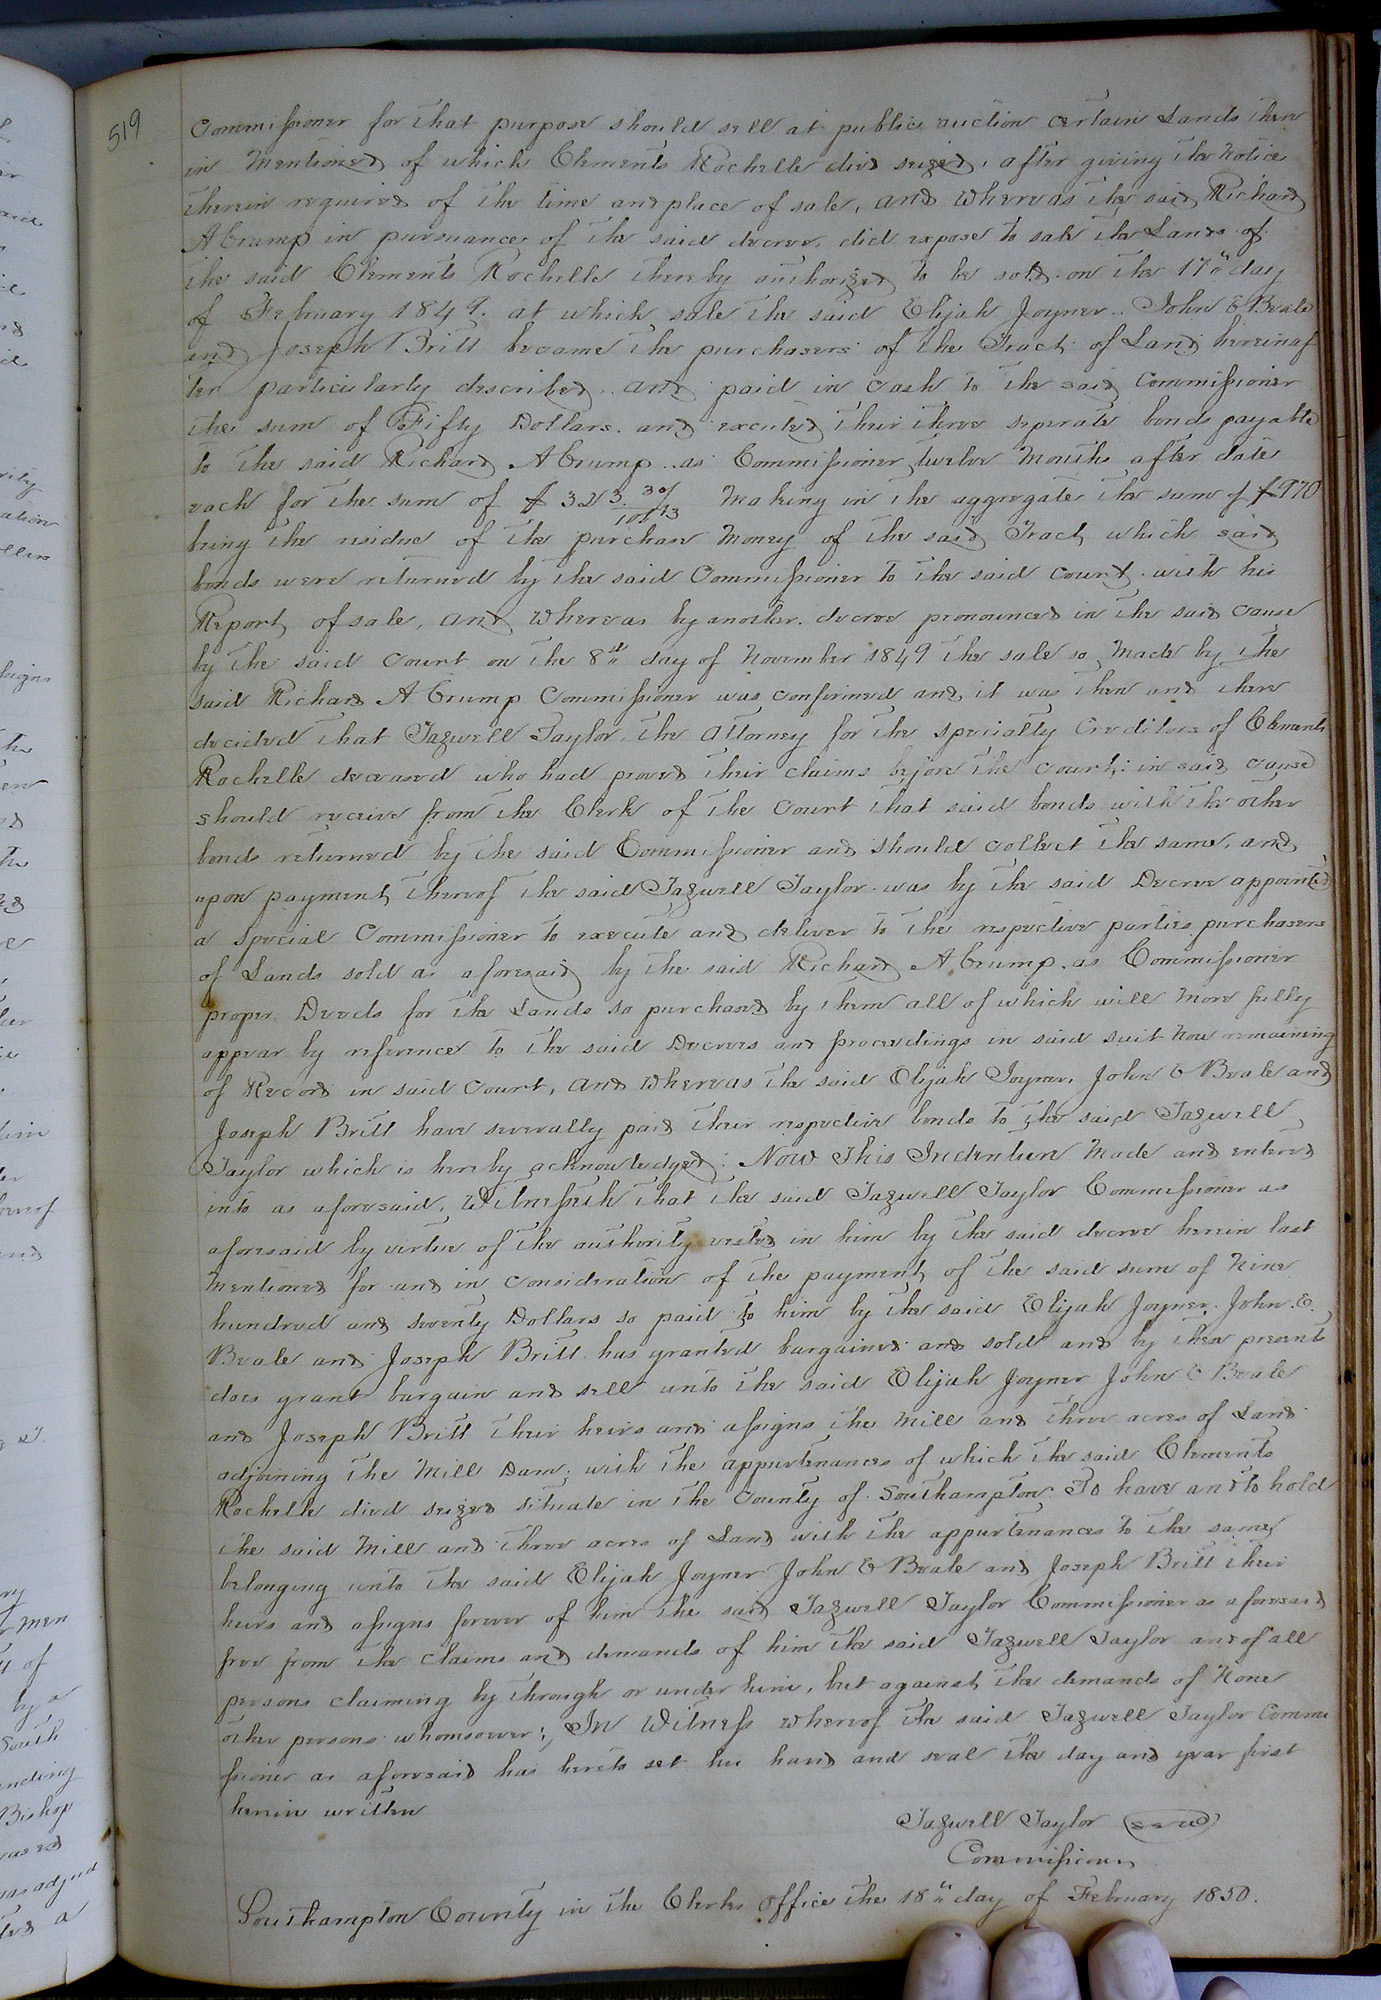 519
Commissioner for that purpose should sell at public auction certain Lands there
in Mentioned of which Clements Rochelle died seized, after giving the Notice
therein required of the time and place of sale, and Whereas the said Richard
A Crump in pursuance of the said decree, did expose to sale the Lands of
the said Clements Rochelle thereby authorized to be sold on the 17th day
of February 1849. at which sale the said Elijah Joyner. John E Beale
and Joseph Britt became the purchasers of the Tract of Land hereinaf
ter particularly described and paid in cash to the said Commissioner
the sum of Fifty Dollars. and executed their three seperate bonds payable
to the said Richard A Crump as Commissioner twelve Months after date
each for the sum of $ 323. Making in the aggregate the sum of $970
being the residue of the purchase Money of the said Tract which said
bonds were returned by the said Commissioner to the said Court with his
Report of sale, and Whereas by another decree pronounced in the said cause
by the said Court on the 8th day of November 1849 the sale so Made by the
said Richard A Crump Commissioner was confirmed and it was then and there
decided that Tazwell Taylor, the Attorney for the specialty Creditors of Clements
Rochelle deceased who had proved their claims before the Court: in said cause
should receive from the Clerk of the Court that said bonds with the other
bonds returned by the said Commissioner and should collect the same, and
upon payment thereof the said Tazwell Taylor was by the said Decree appointed
a special Commissioner to execute and deliver to the respective parties purchasers
of Lands sold as aforesaid by the said Richard A Crump. as Commissioner
proper Deeds for the Lands so purchased by them all of which will More fully
appear by reference to the said Decrees and proceedings in said suit Now remaining
of Record in said Court, and Whereas the said Elijah Joyner, John E Beale and
Joseph Britt have severally paid their respective bonds to the said Tazwell
Taylor which is hereby acknowledged: Now This Indenture Made and entered
into as aforesaid, Witnesseth that the said Tazwell Taylor Commissioner as
aforesaid by virtue of the authority vested in him by the said decree herein last
Mentioned for and in consideration of the payment of the said sum of Nine
hundred and seventy Dollars so paid to him by the said Elijah Joyner. John. E.
Beale and Joseph Britt has granted bargained and sold and by these presents
does grant bargain and sell unto the said Elijah Joyner John E Beale
and Joseph Britt their heirs and assigns the Mill and three acres of Land
adjoining the Mill Dam; with the appurtenances of which the said Clements
Rochelle died seized situate in the County of Southampton: To have and to hold
the said Mill and three acres of Land with the appurtenances to the same
belonging unto the said Elijah Joyner John E Beale and Joseph Britt their
heirs and assigns forever of him the said Tazwell Taylor Commissioner as aforesaid
free from the claims and demands of him the said Tazwell Taylor and of all
persons claiming by through or under him, but against the demands of None
other persons whomsoever; In Witness Whereof the said Tazwell Taylor Commi
ssioner as aforesaid has hereto set his hand and seal the day and year first
herein written
Tazwell Taylor (seal)
Commissioner
Southampton County in the Clerks Office the 18th day of February 1850.